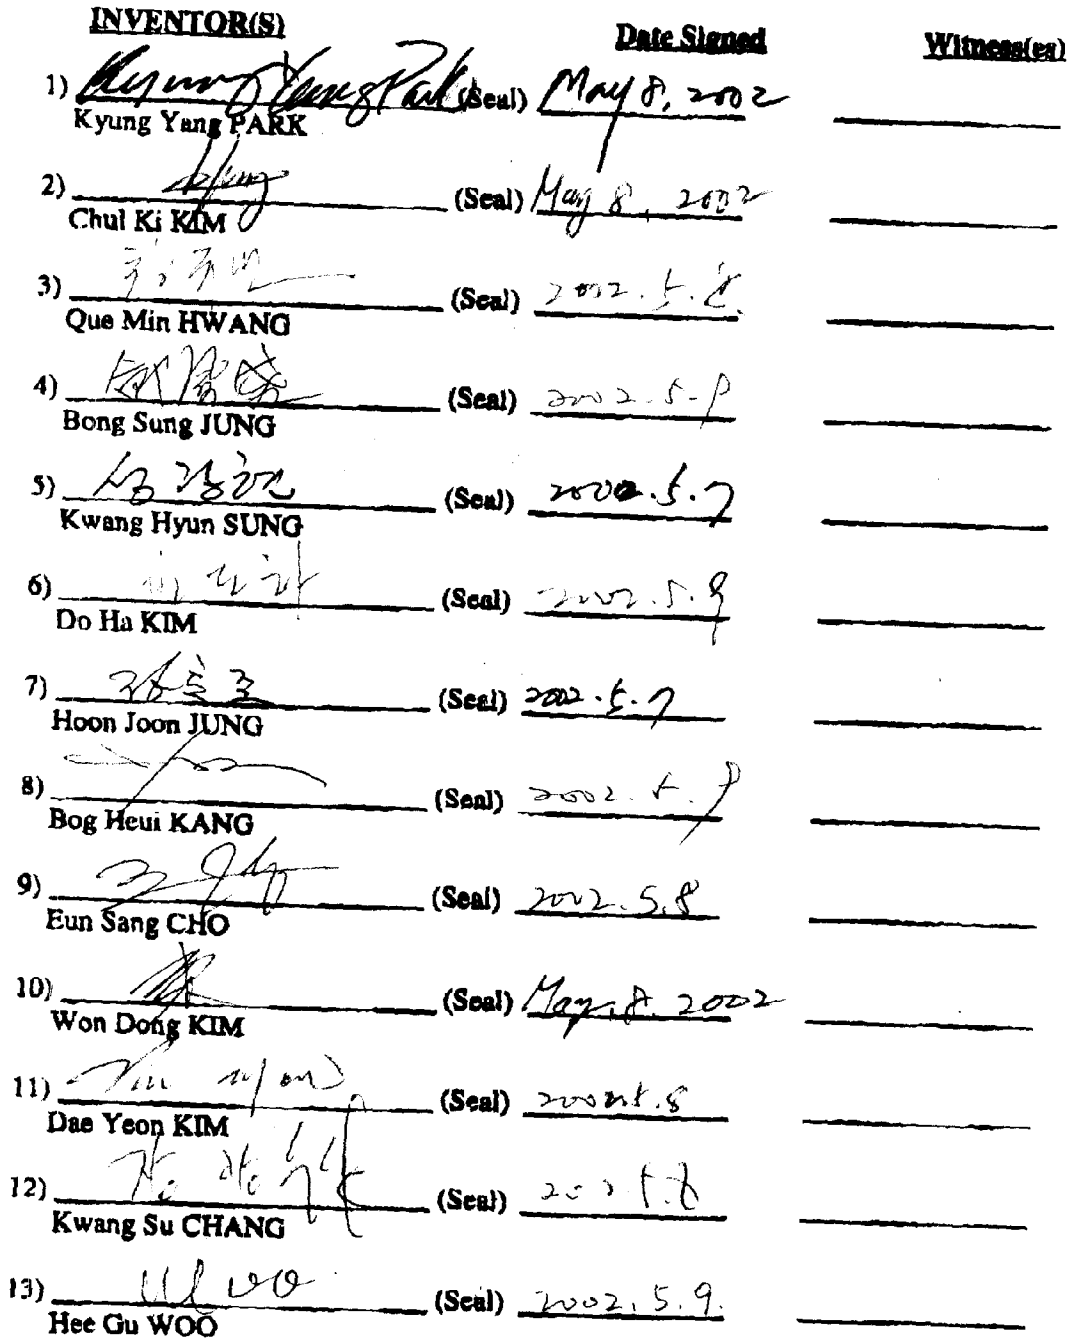 INVENTOR(S) Date Signed Witness(es)
1) Kyung Yang Park (Seal) May 8, 2002
Kyung Yang PARK
2) (Seal) May 8, 2002
Chul Ki KIM
3) (Seal) 2002. 5. 8.
Que Min HWANG
4) (Seal) 2002. 5.
Bong Sung JUNG
5) 성광현 (Seal) 2002. 5. 7
Kwang Hyun SUNG
6) (Seal) 2002. 5. 9
Do Ha KIM
7) (Seal) 2002. 5. 7
Hoon Joon JUNG
8) (Seal) 2002. 5.
Bog Heui KANG
9) (Seal) 2002. 5. 8
Eun Sang CHO
10) (Seal) May, 8. 2002
Won Dong KIM
11) (Seal) 2002. 5. 8
Dae Yeon KIM
12) (Seal) 2002. 5. 8
Kwang Su CHANG
13) Woo (Seal) 2002. 5. 9.
Hee Gu WOO